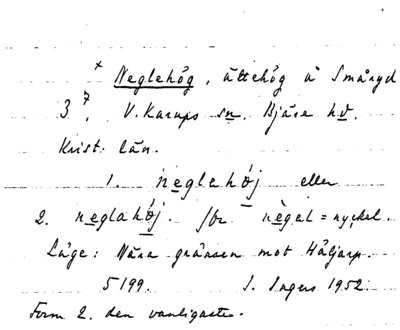 x Neglehög, ättehög å Smäryd
3⁷. V. Karups sn. Bjäre hd.
Krist. län.
1. neglahǿj eller
2. nęglahǿj. /br nègəl = nyckel.
Läge: Nära gränsen mot Håljarp.
5199. I. Ingers 1952.
Form 2. den vanligaste.